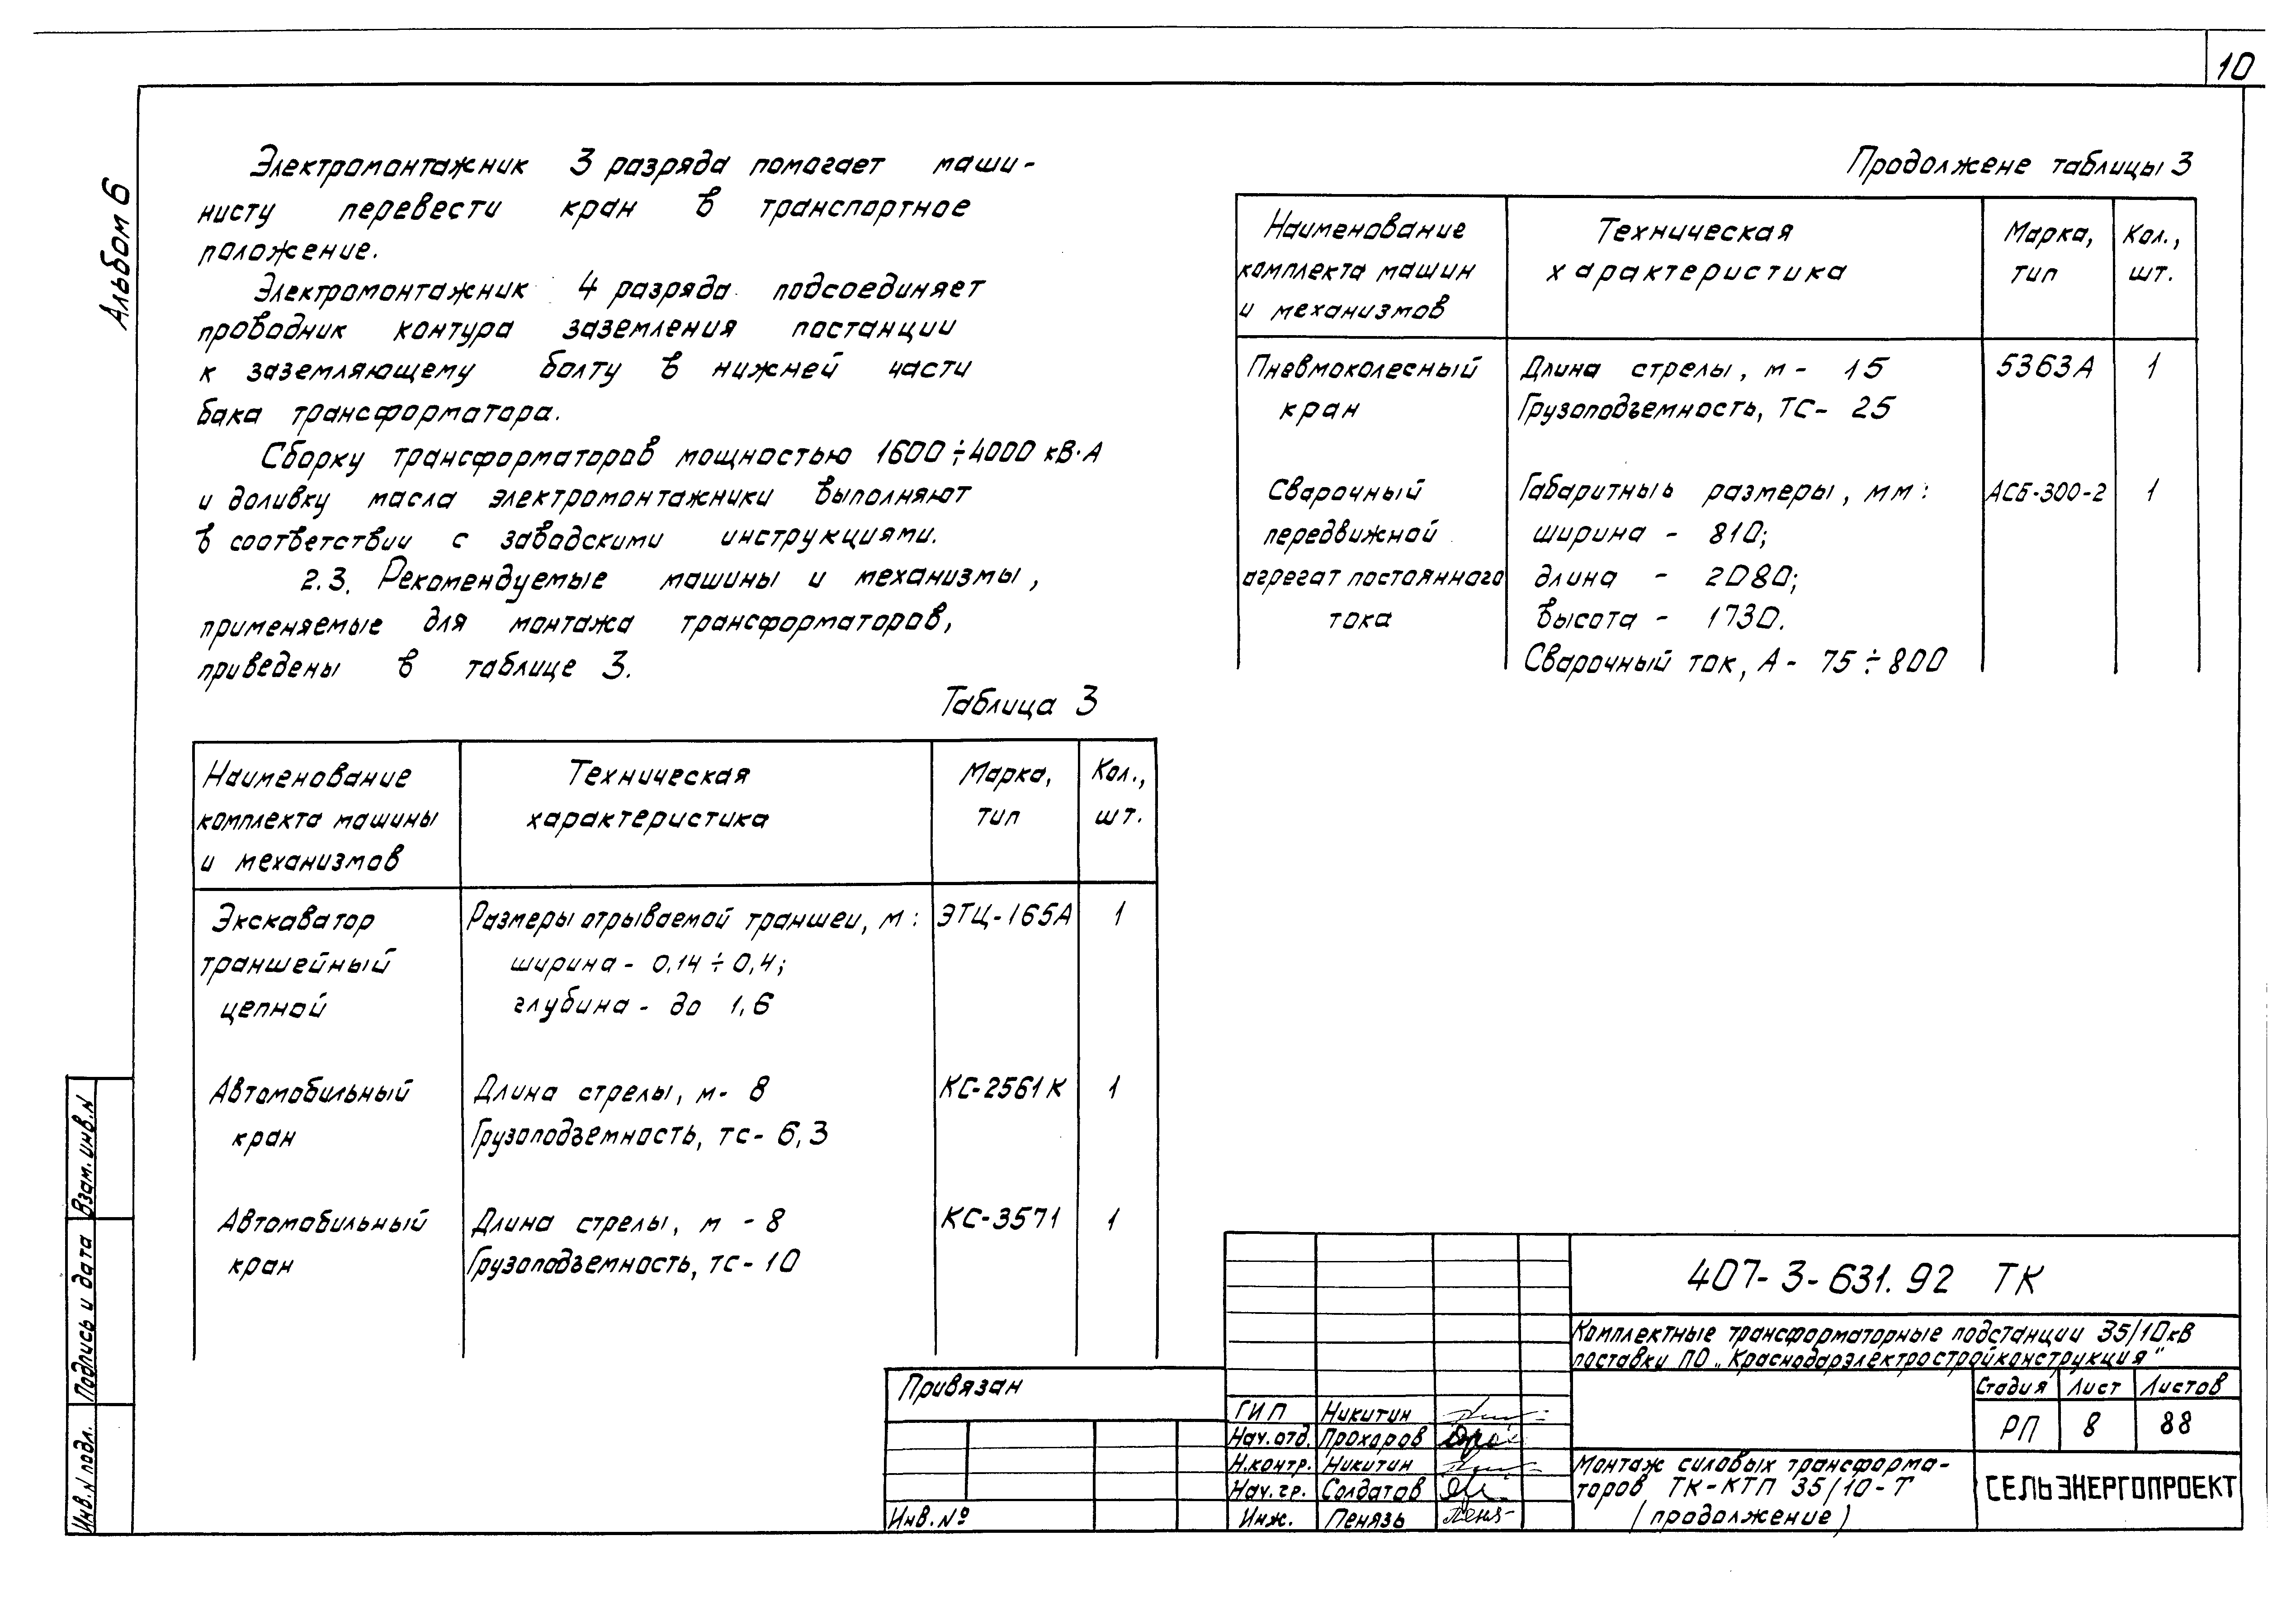 10
Альбом 6
Электромонтажник 3 разряда помогает маши-
нисту перевести кран в транспортное
положение.
Электромонтажник 4 разряда подсоединяет
проводник контура заземления постанции
к заземляющему болту в нижней части
бака трансформатора.
Сборку трансформаторов мощностью 1600÷4000 кВ·А
и доливку масла электромонтажники выполняют
в соответствии с заводскими инструкциями.
2.3. Рекомендуемые машины и механизмы,
применяемые для монтажа трансформаторов,
приведены в таблице 3.
Таблица 3
Наименование комплекта машины и механизмов | Техническая характеристика | Марка, тип | Кол., шт.
Экскаватор | Размеры отрываемой траншеи, м: | ЭТЦ-165А | 1
траншейный | ширина - 0,14÷0,4;
цепной | глубина - до 1,6
Автомобильный | Длина стрелы, м- 8 | КС-2561К | 1
кран | Грузоподъемность, тс- 6,3
Автомобильный | Длина стрелы, м - 8 | КС-3571 | 1
кран | Грузоподъемность, тс-10
Продолжене таблицы 3
Наименование комплекта машин и механизмов | Техническая характеристика | Марка, тип | Кол., шт.
Пневмоколесный | Длина стрелы, м - 15 | 5363А | 1
кран | Грузоподъемность, ТС- 25
Сварочный | Габаритныь размеры, мм: | АСБ-300-2 | 1
передвижной | ширина - 810;
агрегат постоянного | длина - 2080;
тока | высота - 1730.
Сварочный ток, А- 75÷800
Взам. инв. N
Подпись и дата
Инв. N подл.
Привязан
Инв. №
407-3-631.92 ТК
Комплектные трансформаторные подстанции 35/10кВ
поставки ПО „Краснодарэлектростройконструкция"
ГИП Никитин
Нач. отд. Прохоров
Н.контр. Никитин
Нач. гр. Солдатов
Инж. Пенязь
Стадия Лист Листов
РП 8 88
Монтаж силовых трансформа-
торов ТК-КТП 35/10-Т
(продолжение)
СЕЛЬЭНЕРГОПРОЕКТ